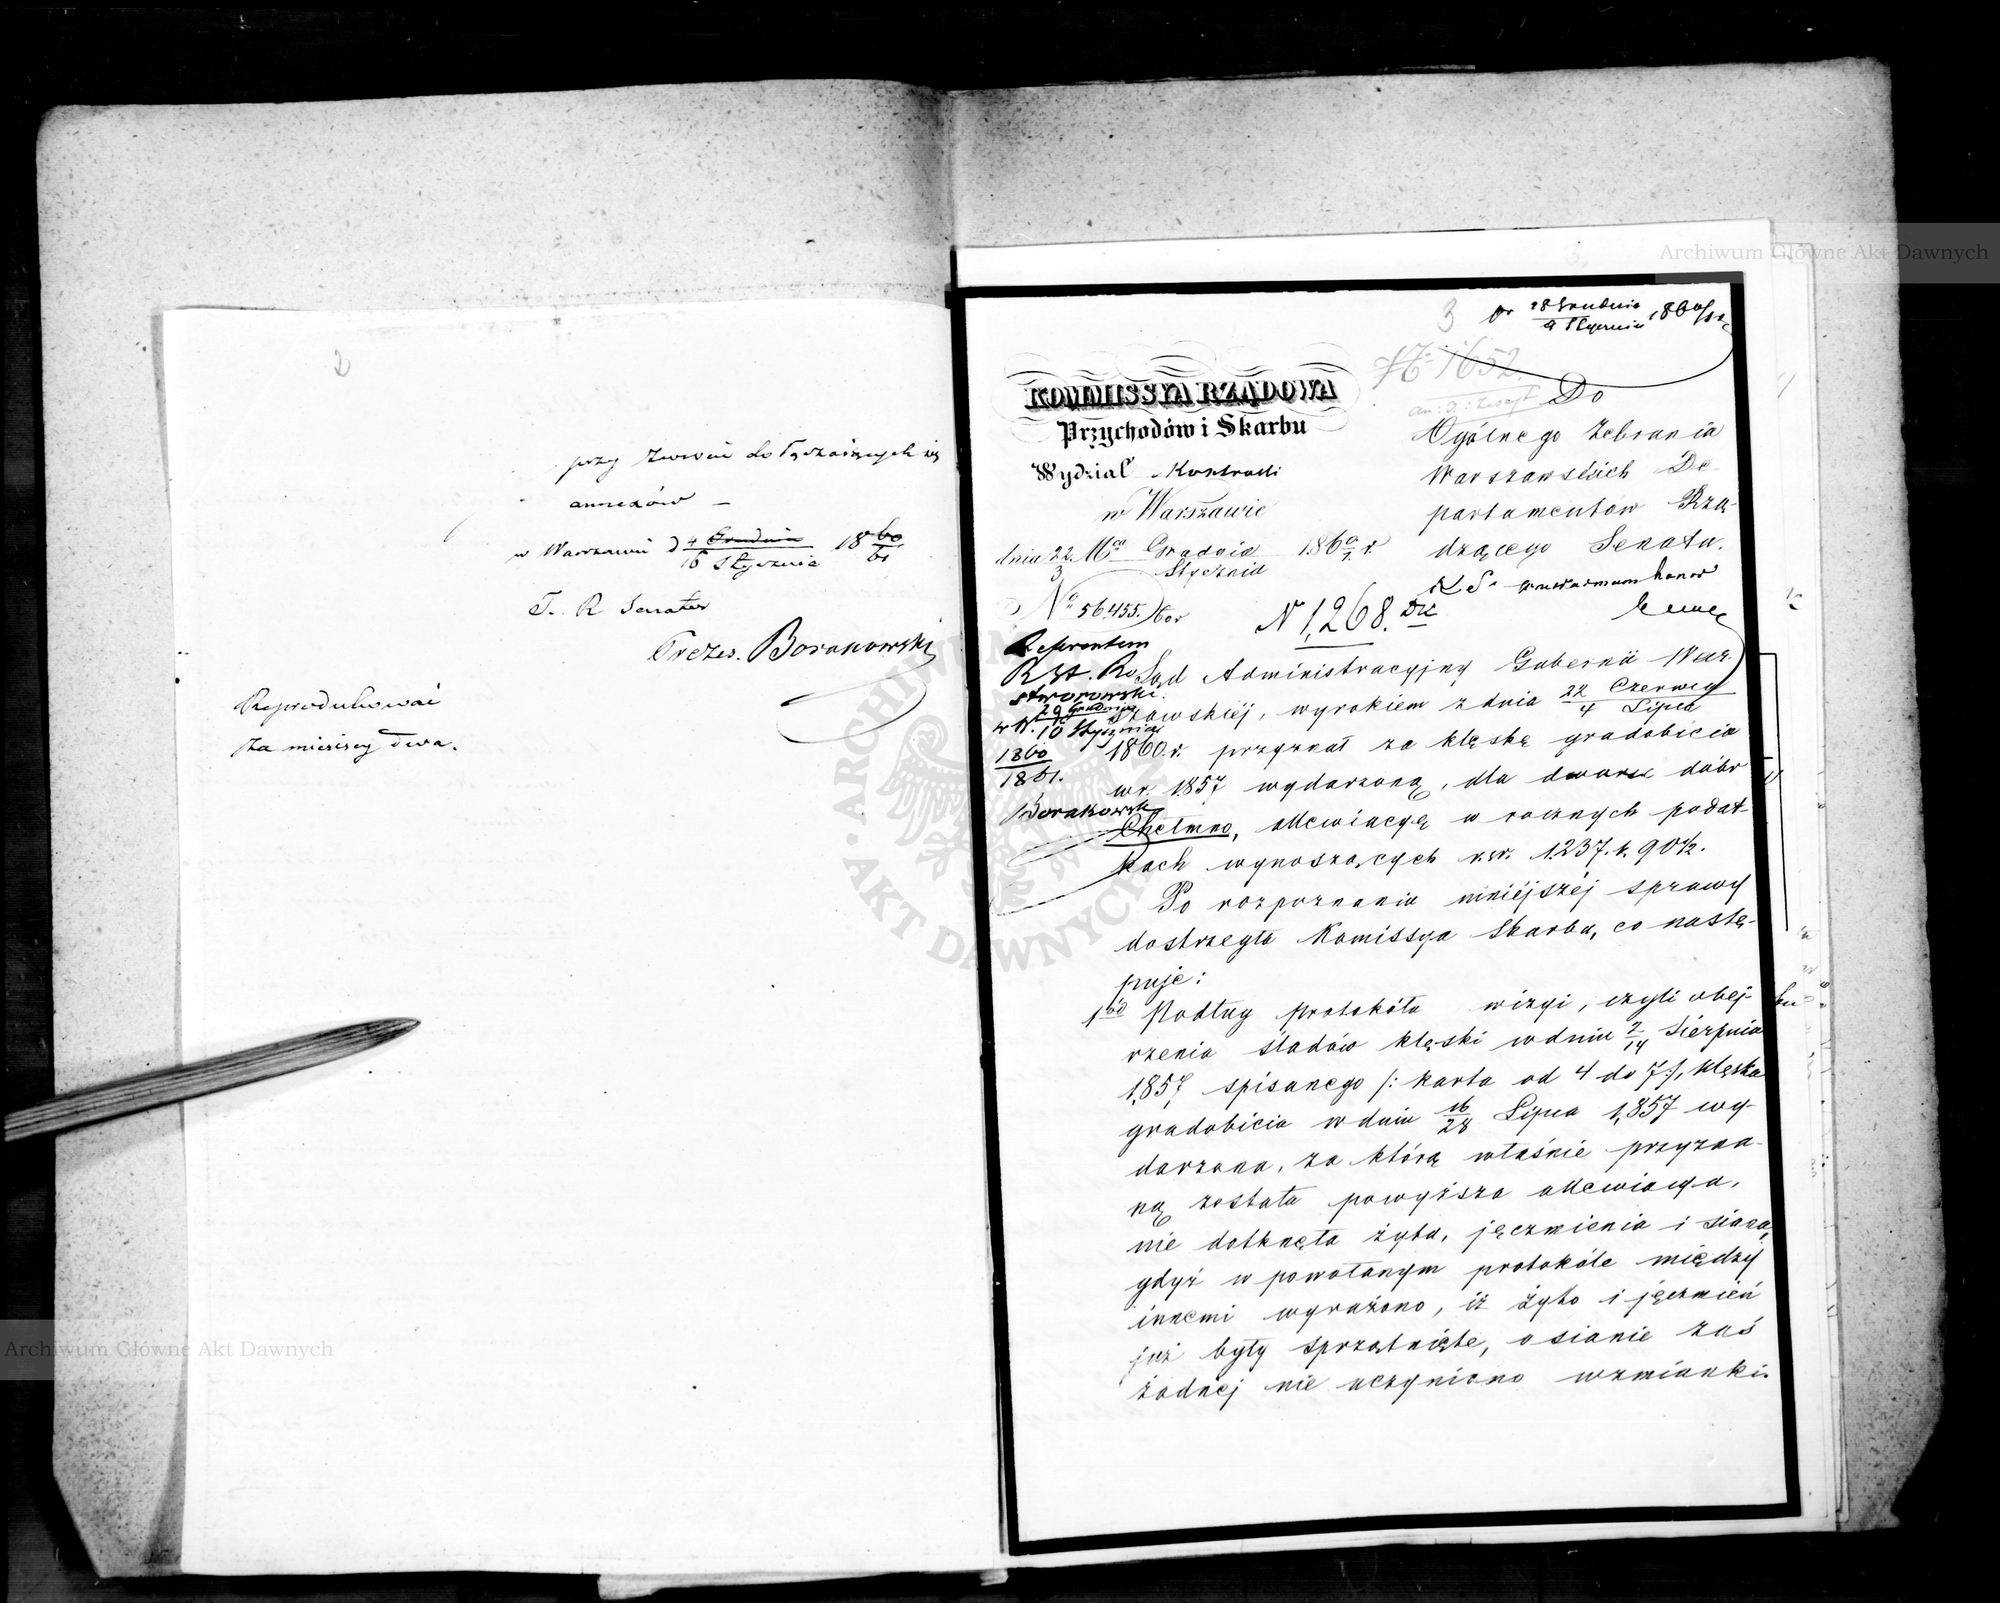 2
przy zwrocie dołączających się
annexów —
w Warszawie d 4 Grudnia 1860
16 Stycznia 61
T. R Senator
Prezes. Borakowski
Reprodukować
za miesięcy dwa.
3
pr 28 Grudnia 1860/61
9 Stycznia
N 1652.
KOMMISSYA RZĄDOWA
Przychodów i Skarbu
Wydział Kontroli
w Warszawie
dnia 22 Mca Grudnia 1860/1 r.
3 Stycznia
No 56455.
Do
Ogólnego Zebrania
Warszawskich De-
partamentów Rzą-
dzącego Senatu.
N 1,268.
Referentem
R. St.
w W. 29 Grudnia
10 Stycznia
1860
1861.
Borakowski
Sąd Administracyjny Gubernii War-
szawskiéj, wyrokiem z dnia 22 Czerwca
4 Lipca
1860 r. przyznał za klęskę gradobicia
w r. 1857 wydarzoną, dla dworu dóbr
Chełmno, allewiacyą w rocznych podat-
kach wynoszących rsr. 1,237. k. 90½.
Po rozpoznaniu niniéjszéj sprawy
dostrzegła Kommissya Skarbu, co nastę-
puje:
1od Podług protokółu wizyi, czyli obej-
rzenia śladów klęski w dniu 2/14 Sierpnia
1,857 spisanego /: karta od 4 do 7:/, klęska
gradobicia w dniu 16/28 Lipca 1,857 wy-
darzona, za którą właśnie przyzna-
ną została powyższa allewiacya,
nie dotknęła żyta, jęczmienia i siana,
gdyż w powołanym protokóle między
innemi wyrażono, iż żyto i jęczmień
już były sprzątnięte, o sianie zaś
żadnej nie uczyniono wzmianki.
Archiwum Główne Akt Dawnych
Archiwum Główne Akt Dawnych
ARCHIWUM
AKT DAWNYCH